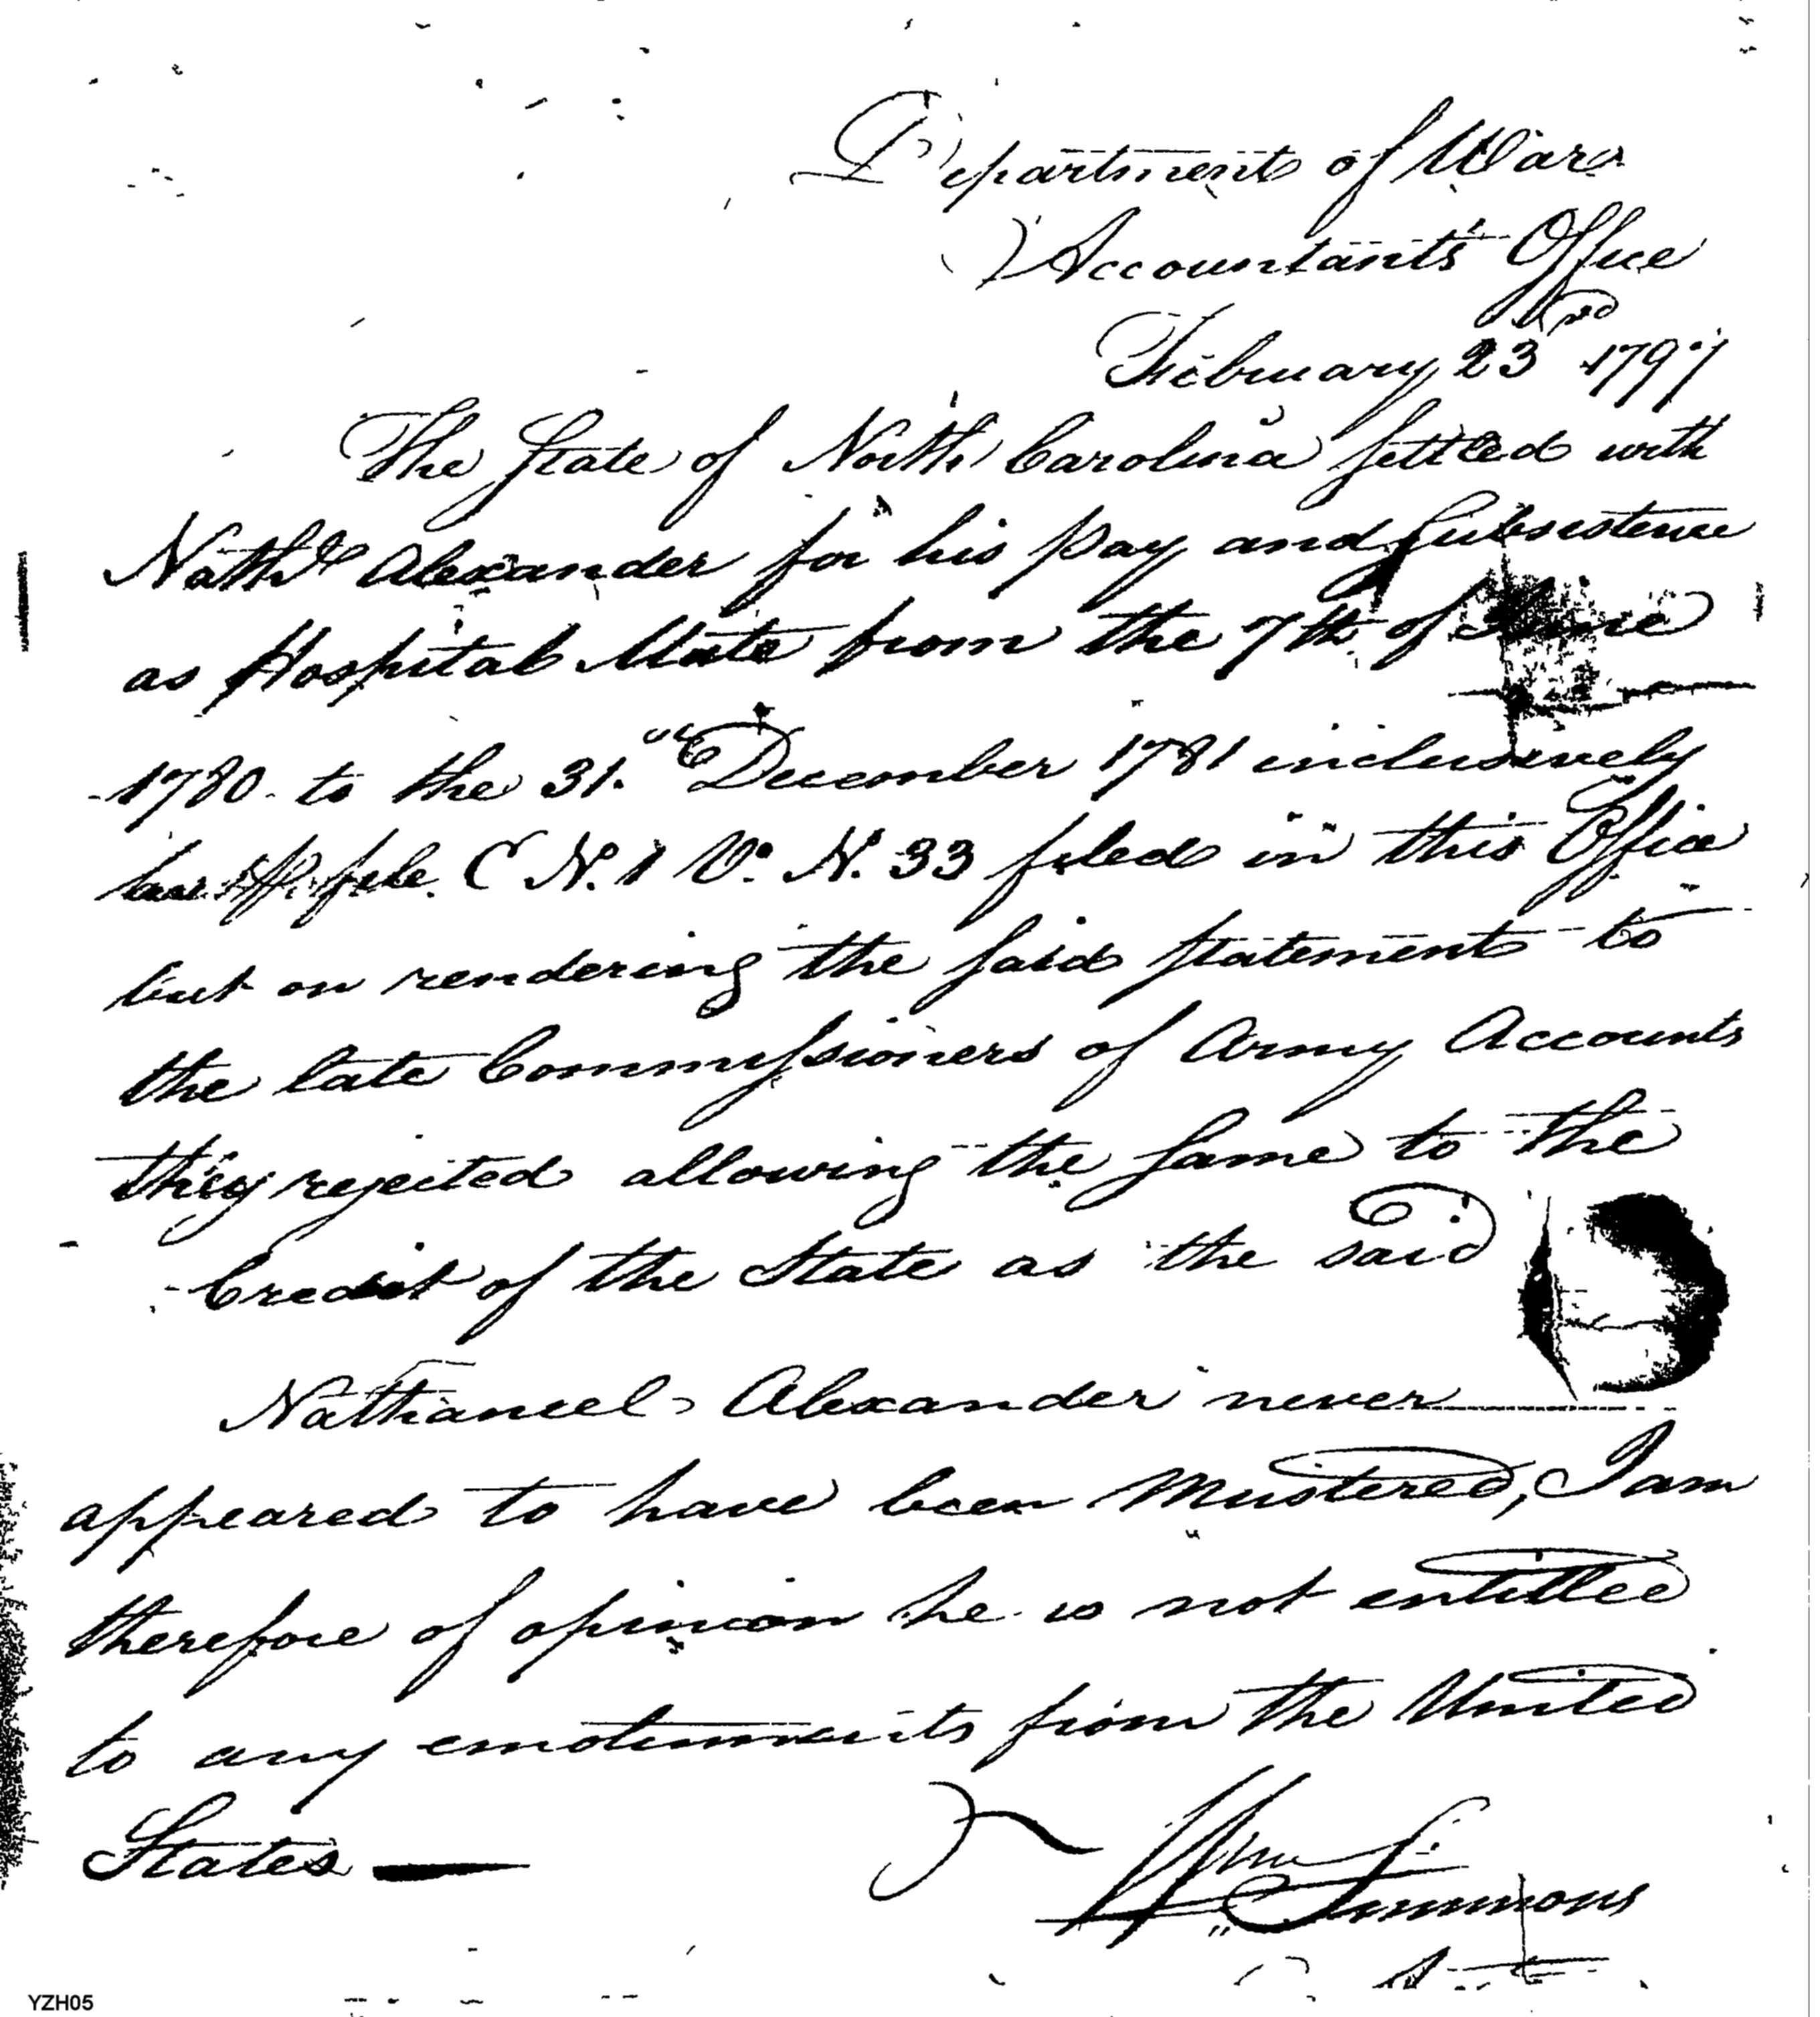 Department of War
Accountants Office
February 23rd 1797
The State of North Carolina settled with
Nathl Alexander for his pay and Subsistence
as Hospital Mate from the 7th of June
1780 to the 31. December 1781 inclusively
file. C N. 1 Vo. N. 33 filed in this Office
but on rendering the said statement to
the late Commissioners of Army Accounts
they rejected allowing the same to the
Credit of the State as the said
Nathaniel Alexander never
appeared to have been Mustered, I am
therefore of opinion he is not entitled
to any emoluments from the United
States —
Wm Simmons
YZH05